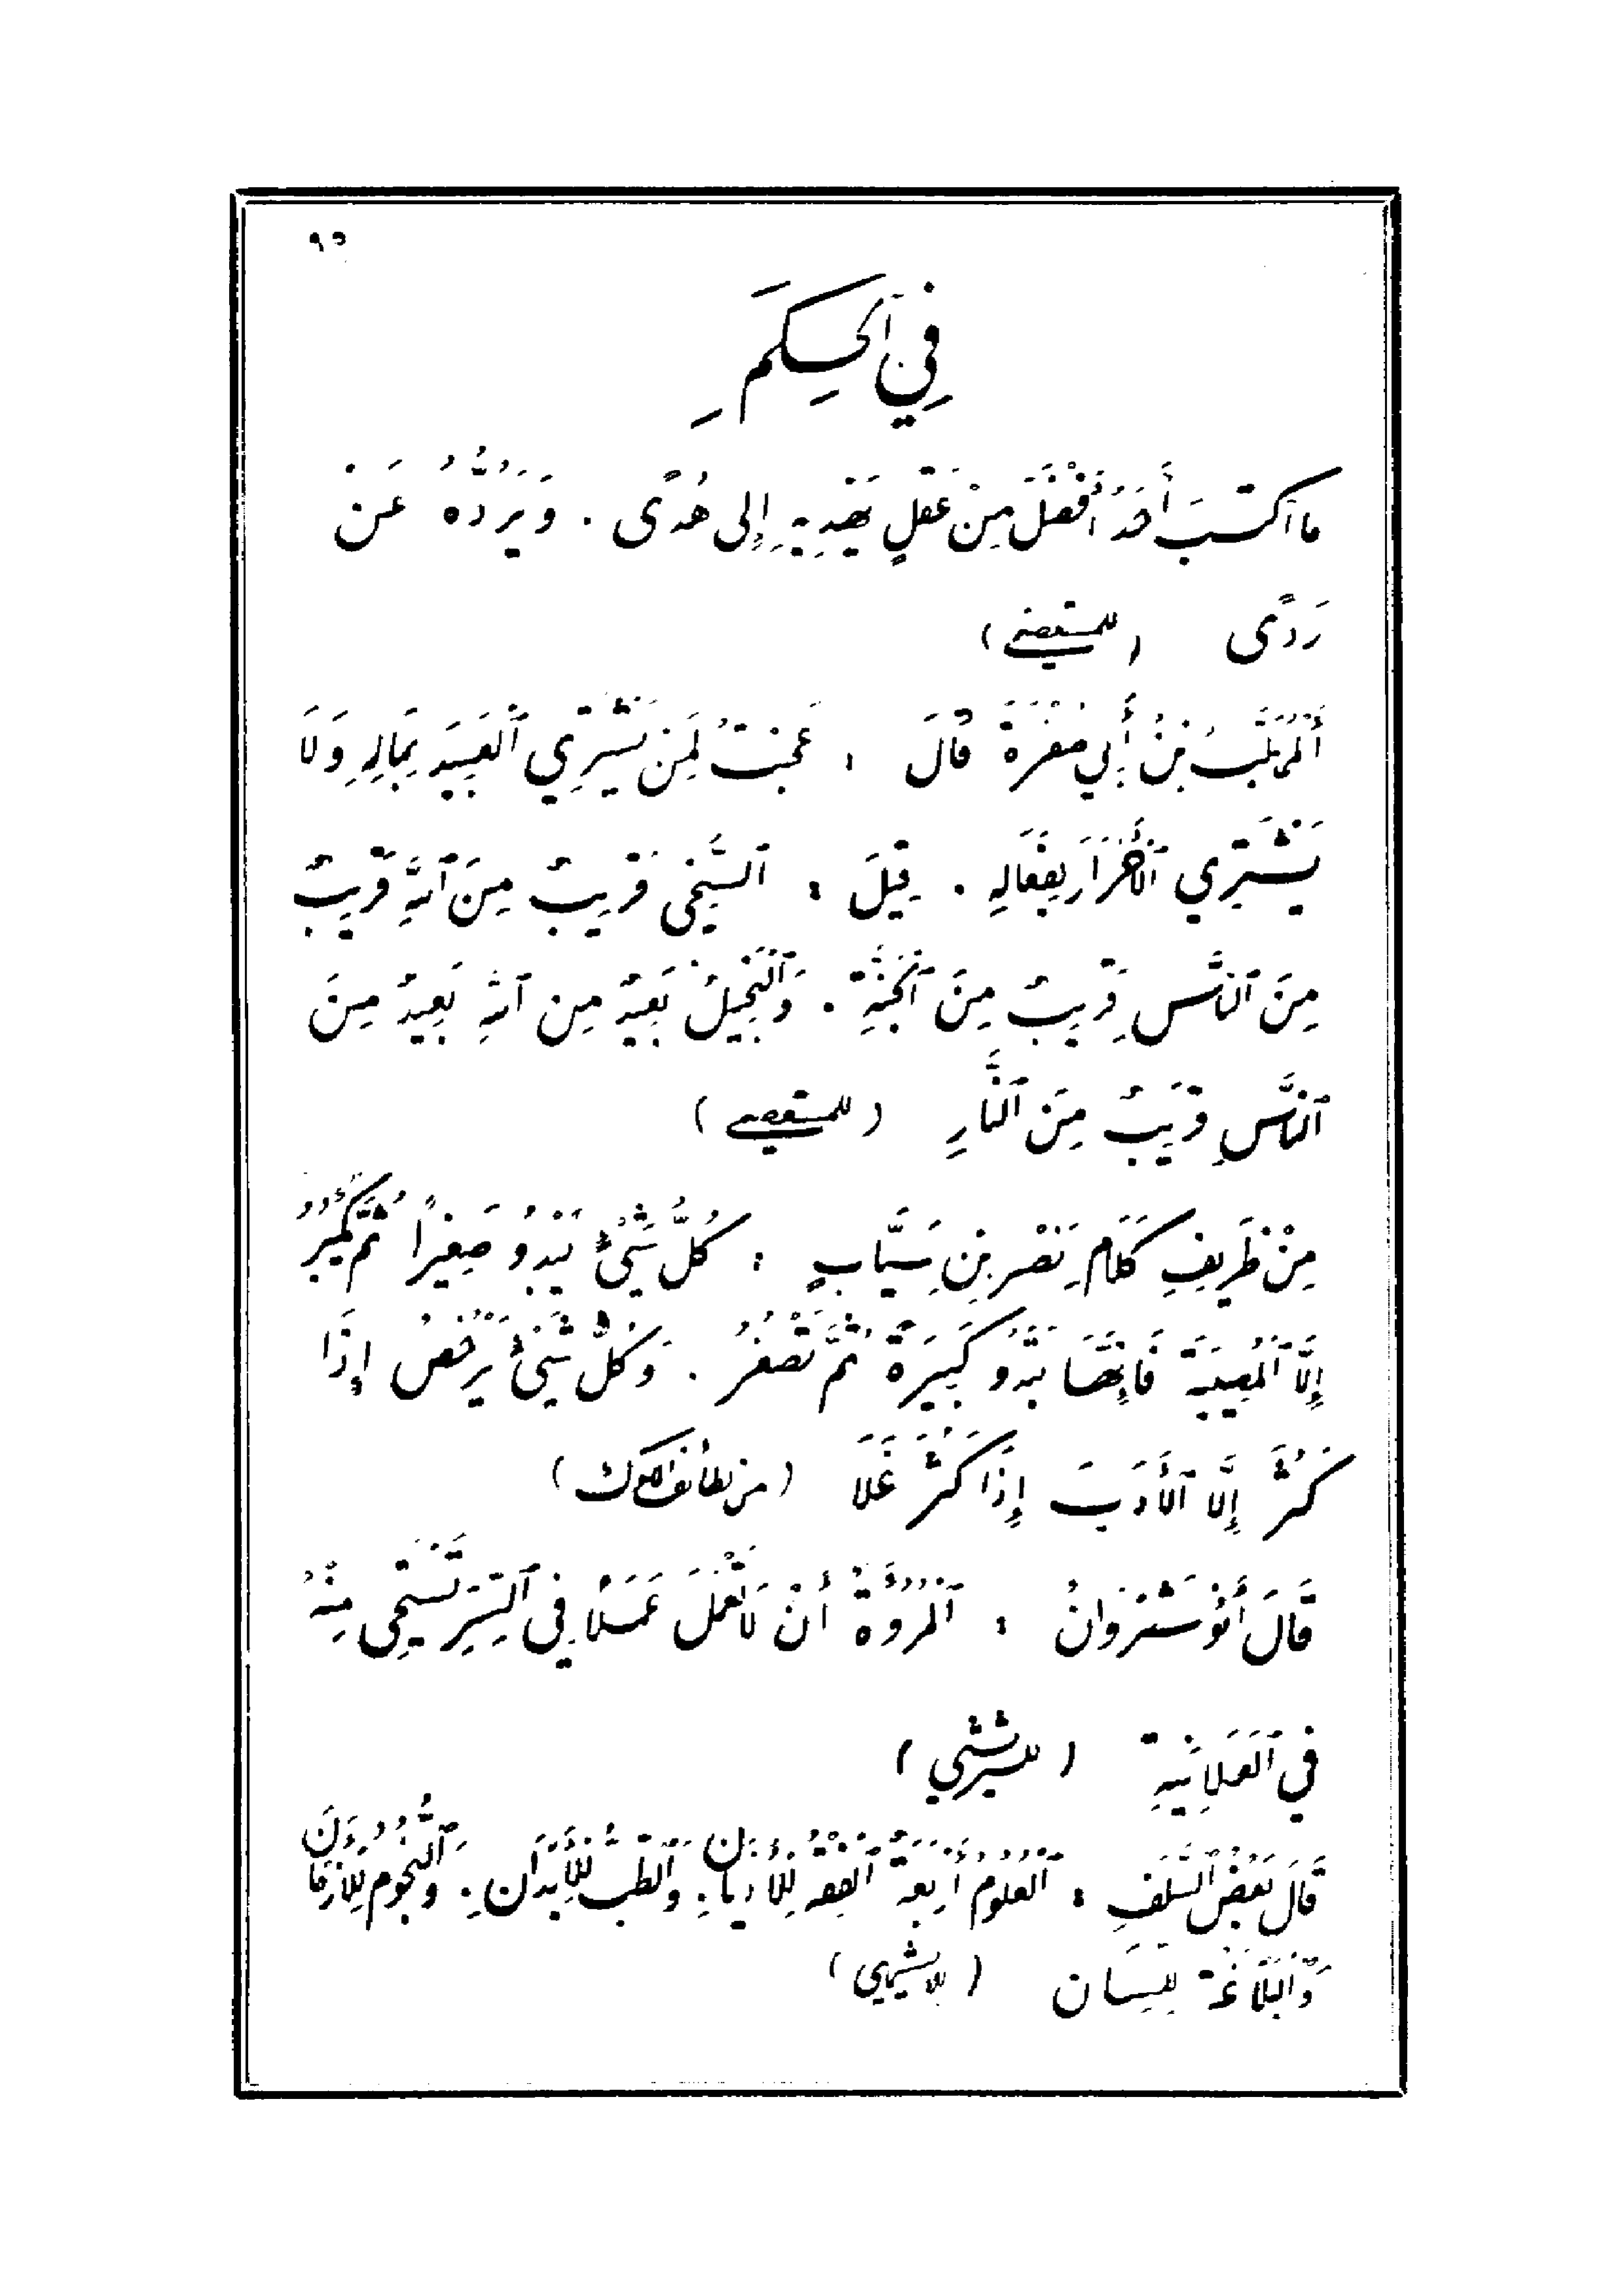 ٩٥
فِي ٱلْحِكَمِ
مَا ٱكْتَسَبَ أَحَدٌ أَفْضَلَ مِنْ عَقْلٍ يَهْدِيهِ إِلَى هُدًى . وَيَرُدُّهُ عَنْ
رَدًى (للمستعصمي)
أَلْمُهَلَّبُ بْنُ أَبِي صُفْرَةَ قَالَ : عَجِبْتُ لِمَنْ يَشْتَرِي ٱلْعَبِيدَ بِمَالِهِ وَلَا
يَشْتَرِي ٱلْأَحْرَارَ بِفِعَالِهِ . قِيلَ : ٱلسَّخِيُّ قَرِيبٌ مِنَ ٱللهِ قَرِيبٌ
مِنَ ٱلنَّاسِ قَرِيبٌ مِنَ ٱلْجَنَّةِ . وَٱلْبَخِيلُ بَعِيدٌ مِنَ ٱللهِ بَعِيدٌ مِنَ
ٱلنَّاسِ قَرِيبٌ مِنَ ٱلنَّارِ (للمستعصمي)
مِنْ ظَرِيفِ كَلَامِ نَصْرِ بْنِ سَيَّابٍ : كُلُّ شَيْءٍ يَبْدُو صَغِيرًا ثُمَّ يَكْبُرُ
إِلَّا ٱلْمُصِيبَةَ فَإِنَّهَا تَبْدُو كَبِيرَةً ثُمَّ تَصْغُرُ . وَكُلُّ شَيْءٍ يَرْخُصُ إِذَا
كَثُرَ إِلَّا ٱلْأَدَبَ إِذَا كَثُرَ غَلَا (من لطائف الملوك)
قَالَ أَنُوشَرْوَانُ : ٱلْمُرُوءَةُ أَنْ لَا تَعْمَلَ عَمَلًا فِي ٱلسِّرِّ تَسْتَحِي مِنْهُ
فِي ٱلْعَلَانِيَةِ (للشريشي)
قَالَ بَعْضُ ٱلسَّلَفِ : ٱلْعُلُومُ أَرْبَعَةٌ ٱلْفِقْهُ لِلْأَدْيَانِ . وَٱلطِّبُّ لِلْأَبْدَانِ . وَٱلنُّجُومُ لِلْأَزْمَانِ
وَٱلْبَلَاغَةُ لِلِّسَانِ (للابشيهي)